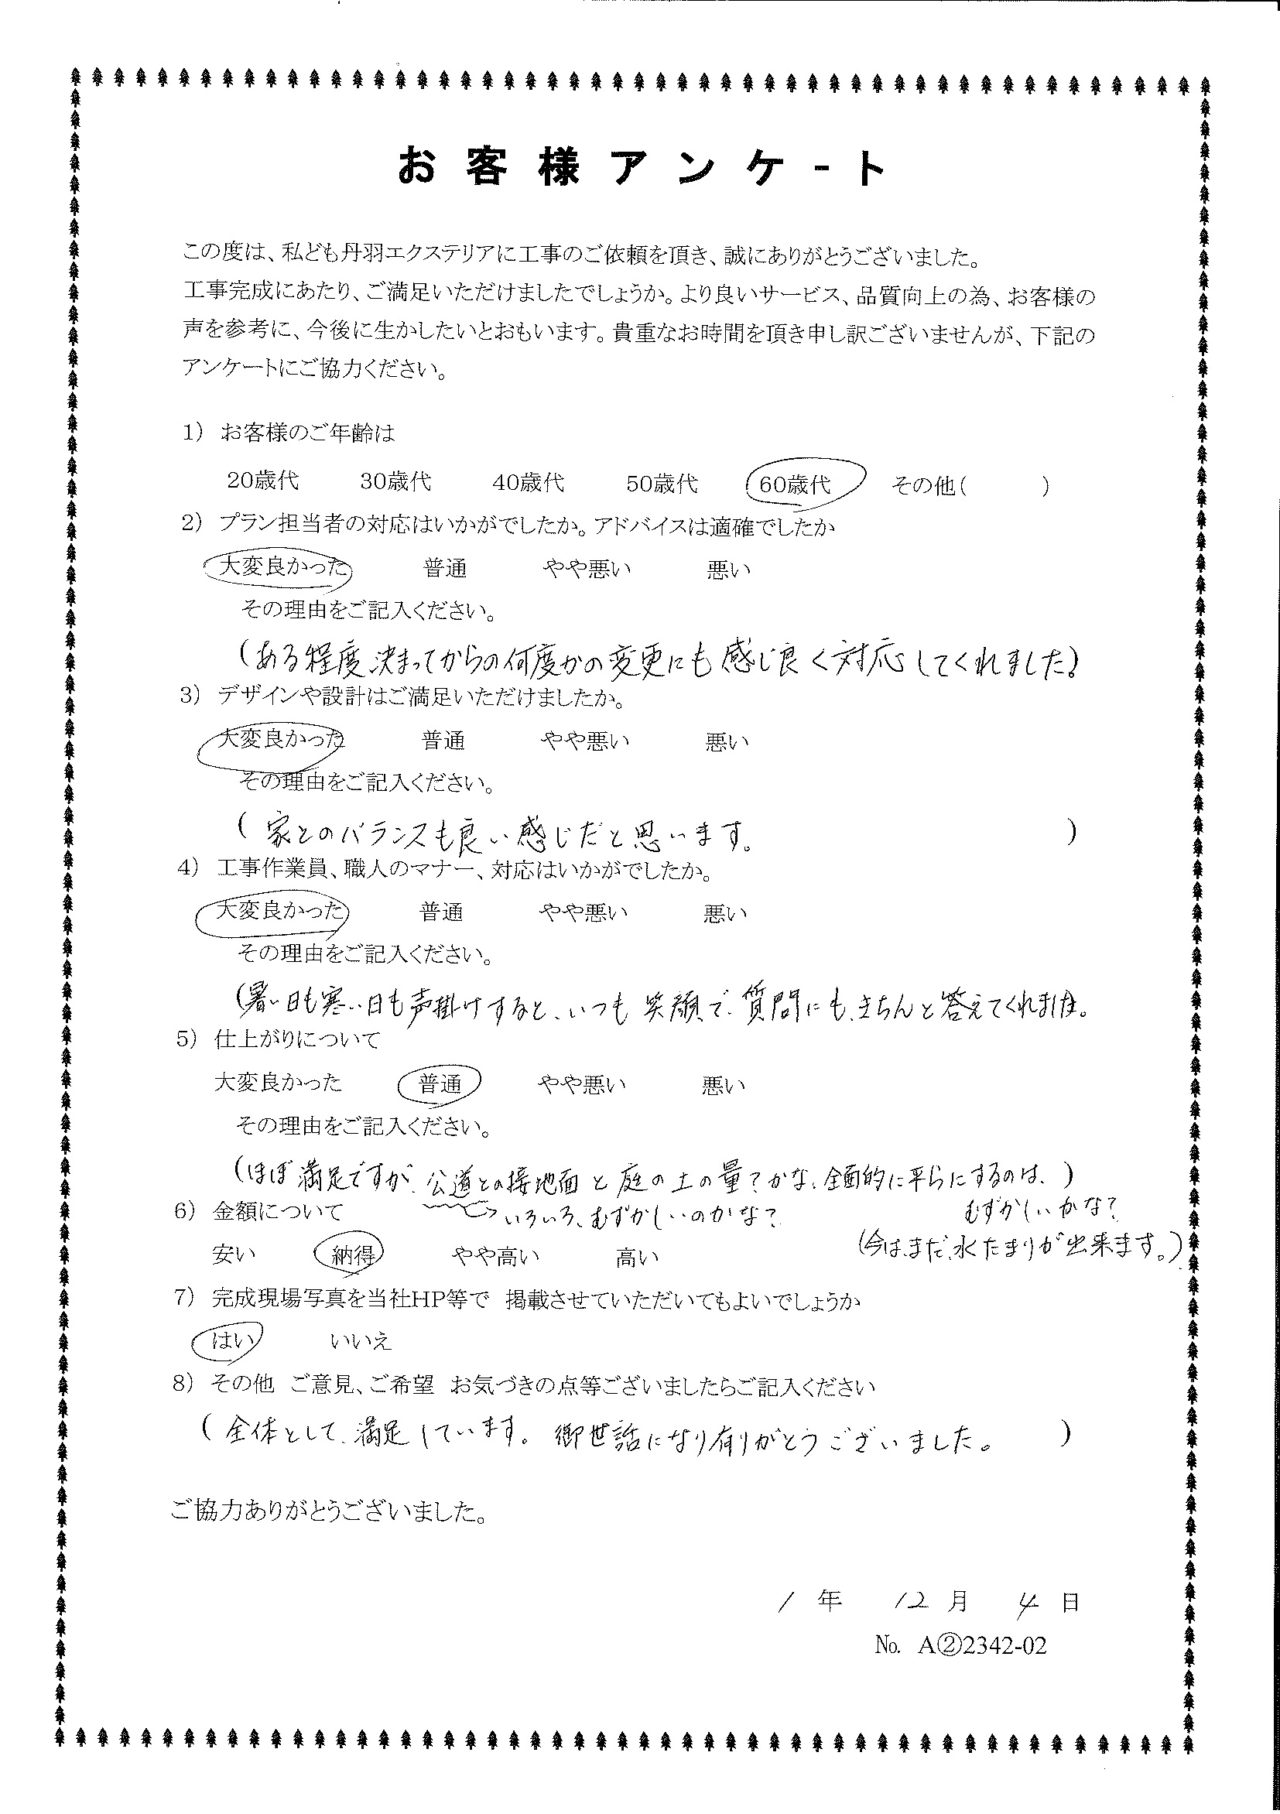 お客様アンケ-ト
この度は、私ども丹羽エクステリアに工事のご依頼を頂き、誠にありがとうございました。
工事完成にあたり、ご満足いただけましたでしょうか。より良いサービス、品質向上の為、お客様の
声を参考に、今後に生かしたいとおもいます。貴重なお時間を頂き申し訳ございませんが、下記の
アンケートにご協力ください。
1) お客様のご年齢は
20歳代 30歳代 40歳代 50歳代 60歳代 その他( )
2) プラン担当者の対応はいかがでしたか。アドバイスは適確でしたか
大変良かった 普通 やや悪い 悪い
その理由をご記入ください。
(ある程度決まってからの何度かの変更にも感じ良く対応してくれました)
3) デザインや設計はご満足いただけましたか。
大変良かった 普通 やや悪い 悪い
その理由をご記入ください。
( 家とのバランスも良い感じだと思います。 )
4) 工事作業員、職人のマナー、対応はいかがでしたか。
大変良かった 普通 やや悪い 悪い
その理由をご記入ください。
(暑い日も寒い日も声掛けすると、いつも笑顔で、質問にも、きちんと答えてくれました。
5) 仕上がりについて
大変良かった 普通 やや悪い 悪い
その理由をご記入ください。
(ほぼ満足ですが、公道との接地面と庭の土の量?かな、全面的に平らにするのは、)
6) 金額について いろいろ、むずかしいのかな? むずかしいかな?
安い 納得 やや高い 高い (今は、まだ、水たまりが出来ます。)
7) 完成現場写真を当社HP等で 掲載させていただいてもよいでしょうか
はい いいえ
8) その他 ご意見、ご希望 お気づきの点等ございましたらご記入ください
( 全体として、満足しています。御世話になり有りがとうございました。 )
ご協力ありがとうございました。
1 年 12 月 4 日
No. A②2342-02